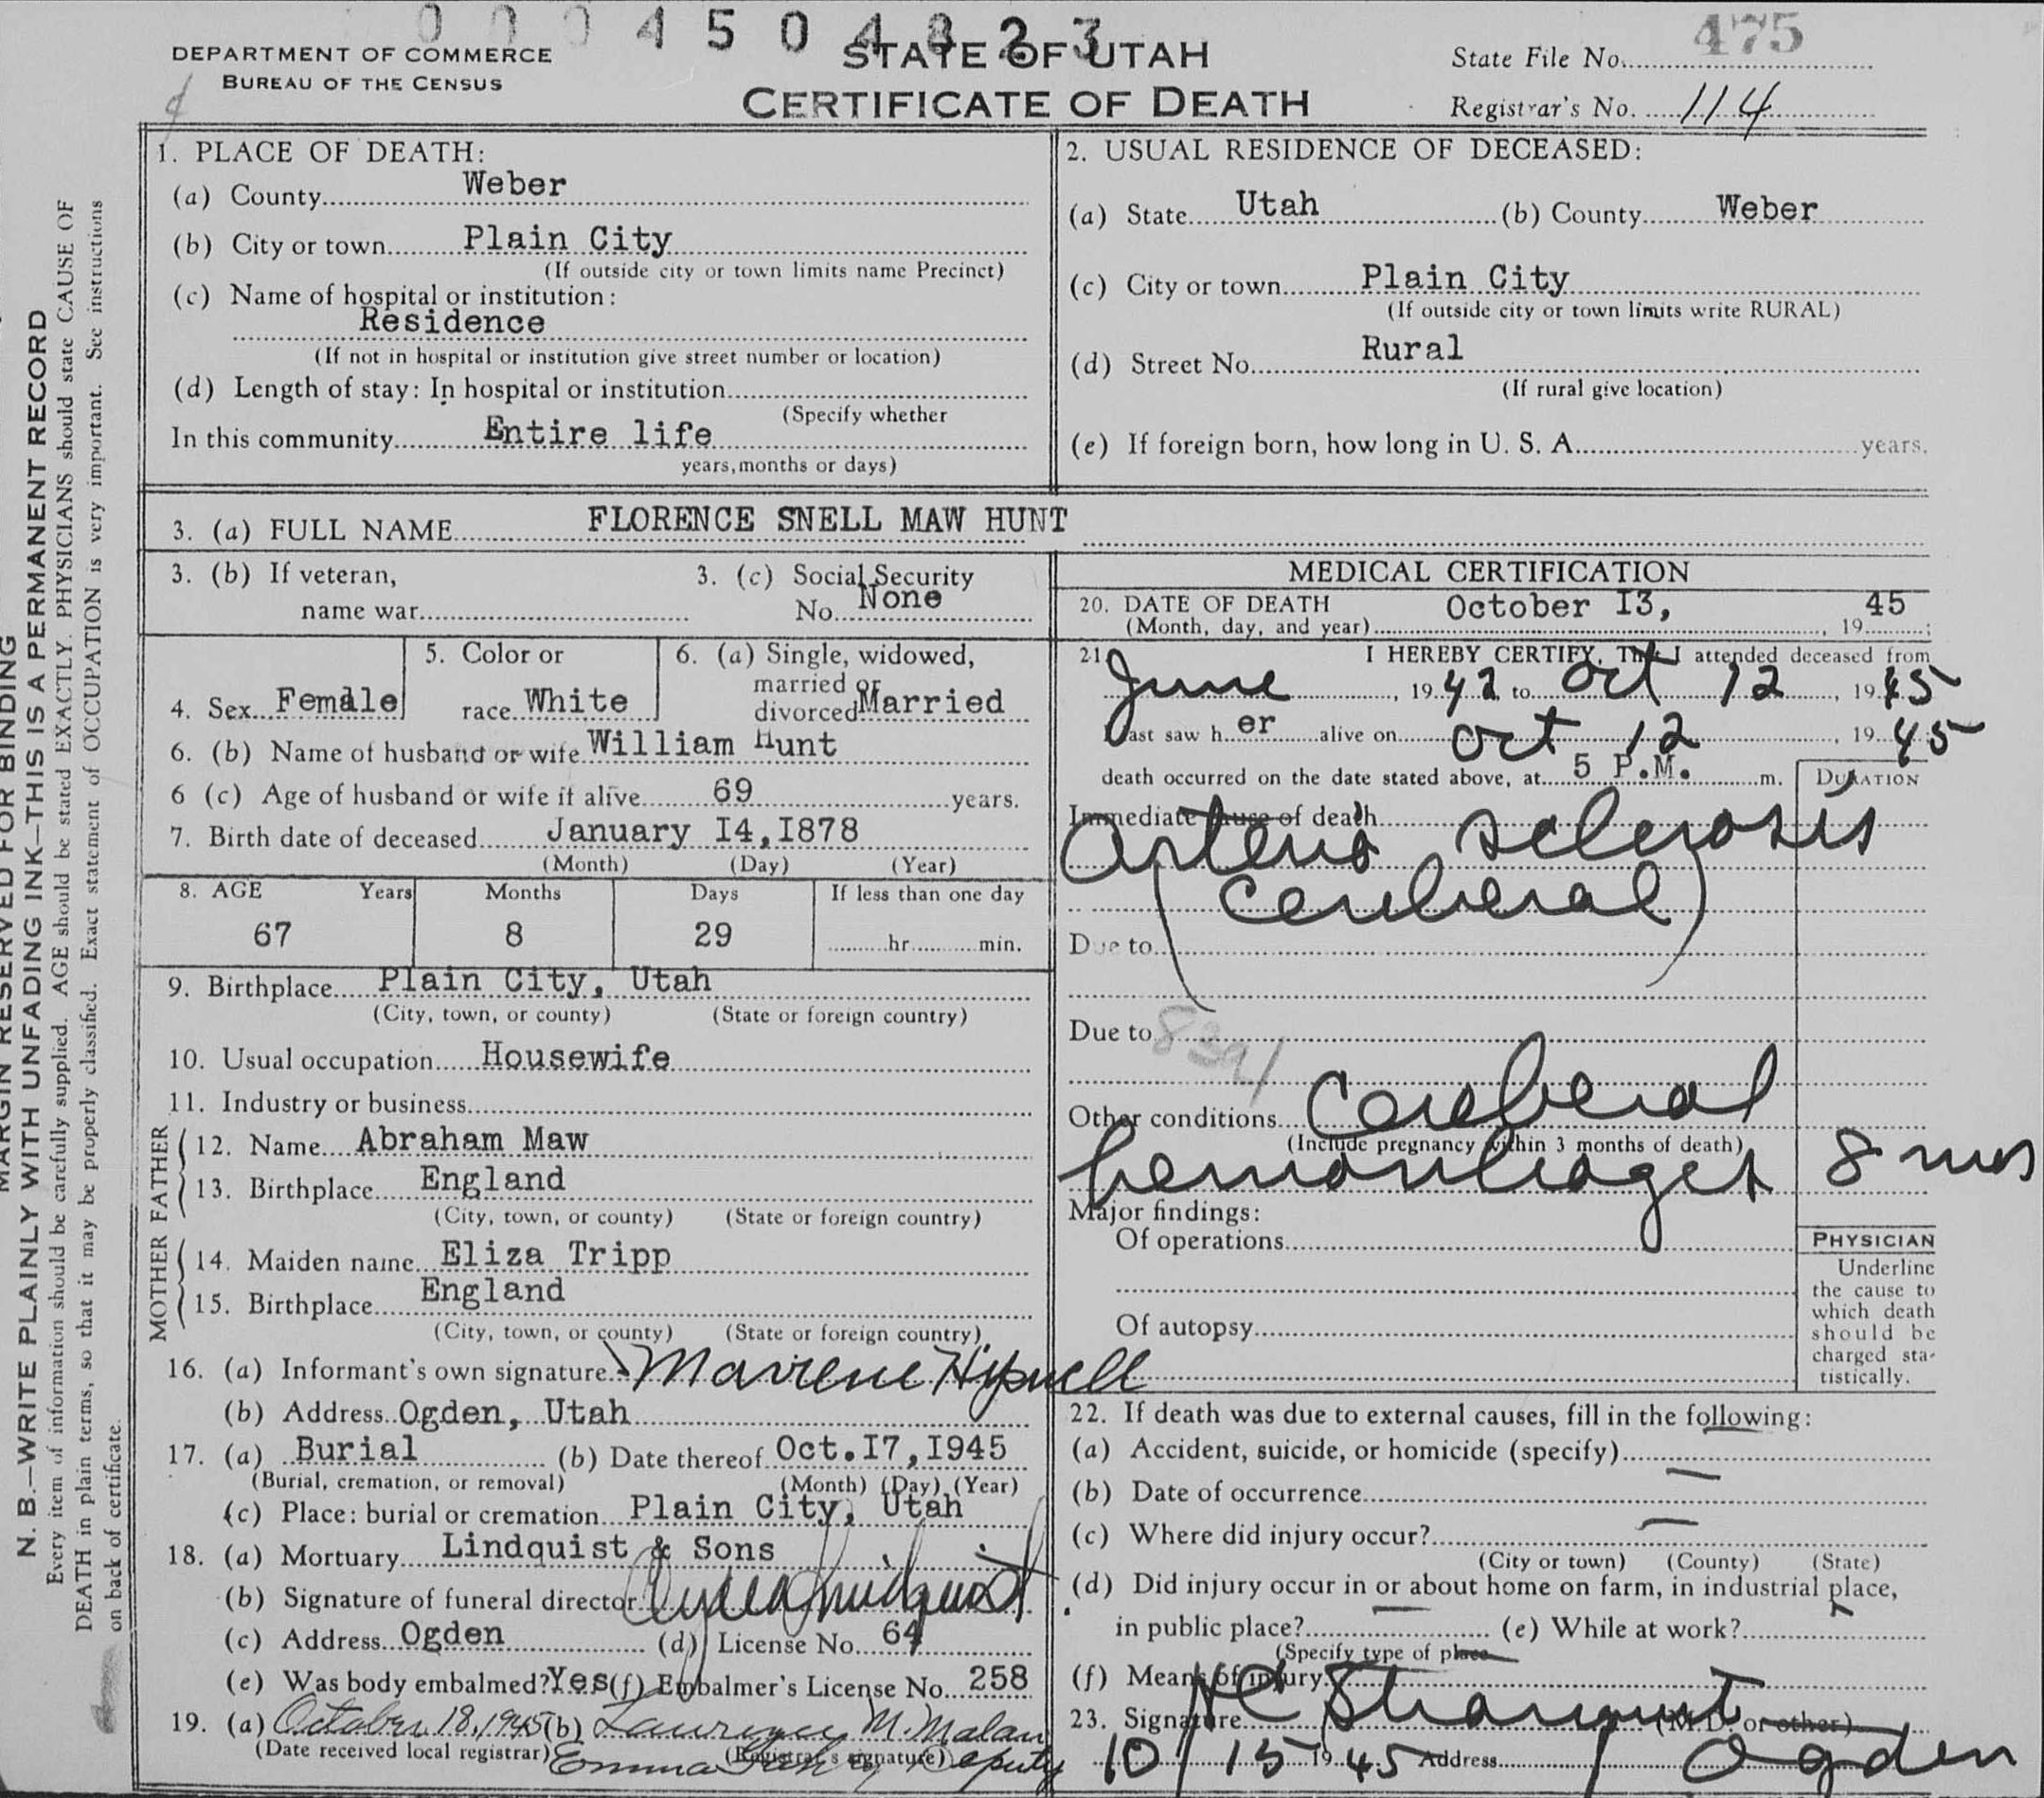 0004504823
DEPARTMENT OF COMMERCE
BUREAU OF THE CENSUS
STATE OF UTAH
CERTIFICATE OF DEATH
State File No. 475
Registrar's No. 114
N. B.—WRITE PLAINLY WITH UNFADING INK—THIS IS A PERMANENT RECORD
Every item of information should be carefully supplied. AGE should be stated EXACTLY. PHYSICIANS should state CAUSE OF
DEATH in plain terms, so that it may be properly classified. Exact statement of OCCUPATION is very important. See instructions
on back of certificate.
1. PLACE OF DEATH:
(a) County Weber
(b) City or town Plain City
(If outside city or town limits name Precinct)
(c) Name of hospital or institution:
Residence
(If not in hospital or institution give street number or location)
(d) Length of stay: In hospital or institution
(Specify whether
In this community Entire life
years, months or days)
2. USUAL RESIDENCE OF DECEASED:
(a) State Utah (b) County Weber
(c) City or town Plain City
(If outside city or town limits write RURAL)
(d) Street No. Rural
(If rural give location)
(e) If foreign born, how long in U. S. A. years.
3. (a) FULL NAME FLORENCE SNELL MAW HUNT
3. (b) If veteran,
name war
3. (c) Social Security
No. None
4. Sex Female
5. Color or
race White
6. (a) Single, widowed,
married or
divorced Married
6. (b) Name of husband or wife William Hunt
6 (c) Age of husband or wife if alive 69 years.
7. Birth date of deceased January I4,I878
(Month) (Day) (Year)
8. AGE Years Months Days If less than one day
67 8 29 hr. min.
9. Birthplace Plain City, Utah
(City, town, or county) (State or foreign country)
10. Usual occupation Housewife
11. Industry or business
FATHER
12. Name Abraham Maw
13. Birthplace England
(City, town, or county) (State or foreign country)
MOTHER
14. Maiden name Eliza Tripp
15. Birthplace England
(City, town, or county) (State or foreign country)
16. (a) Informant's own signature Mavrene
(b) Address Ogden, Utah
17. (a) Burial (b) Date thereof Oct.I7,I945
(Burial, cremation, or removal) (Month) (Day) (Year)
(c) Place: burial or cremation Plain City, Utah
18. (a) Mortuary Lindquist & Sons
(b) Signature of funeral director
(c) Address Ogden (d) License No. 64
(e) Was body embalmed? Yes (f) Embalmer's License No. 258
19. (a) October 18, 1945 (b) Lawrence M. Malan
(Date received local registrar) (Registrar's signature)
Emma Deputy
MEDICAL CERTIFICATION
20. DATE OF DEATH October I3, 45
(Month, day, and year) , 19 ;
21. I HEREBY CERTIFY, That I attended deceased from
June , 19 42 to Oct 12 , 19 45
I last saw h er alive on Oct 12 , 19 45
death occurred on the date stated above, at 5 P.M. m.
DURATION
Immediate cause of death
Arterio sclerosis
(cerebral)
Due to
Due to
8391
Other conditions Cerebral
(Include pregnancy within 3 months of death)
hemorrhages 8 mos
Major findings:
Of operations
Of autopsy
PHYSICIAN
Underline
the cause to
which death
should be
charged sta-
tistically.
22. If death was due to external causes, fill in the following:
(a) Accident, suicide, or homicide (specify)
(b) Date of occurrence
(c) Where did injury occur?
(City or town) (County) (State)
(d) Did injury occur in or about home on farm, in industrial place,
in public place? (e) While at work?
(Specify type of place
(f) Means of injury
23. Signature (M.D. or other)
10/15 1945 Address Ogden